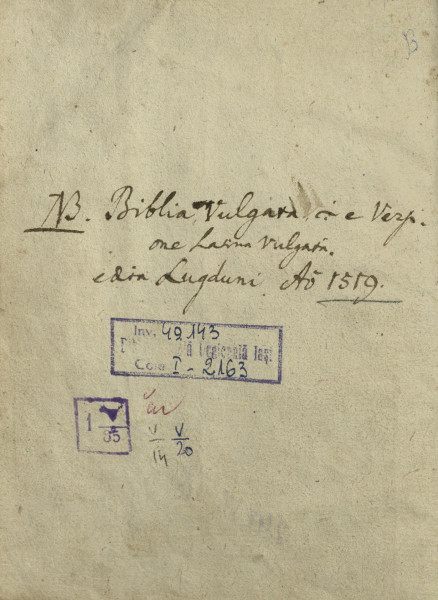 B
NB. Biblia Vulgata è Versi-
one Latina Vulgata.
edita Lugduni Aõ 1519.
Inv. 49143
Regională Iași
Cota I-2163
1 V/35
V/14 V/20